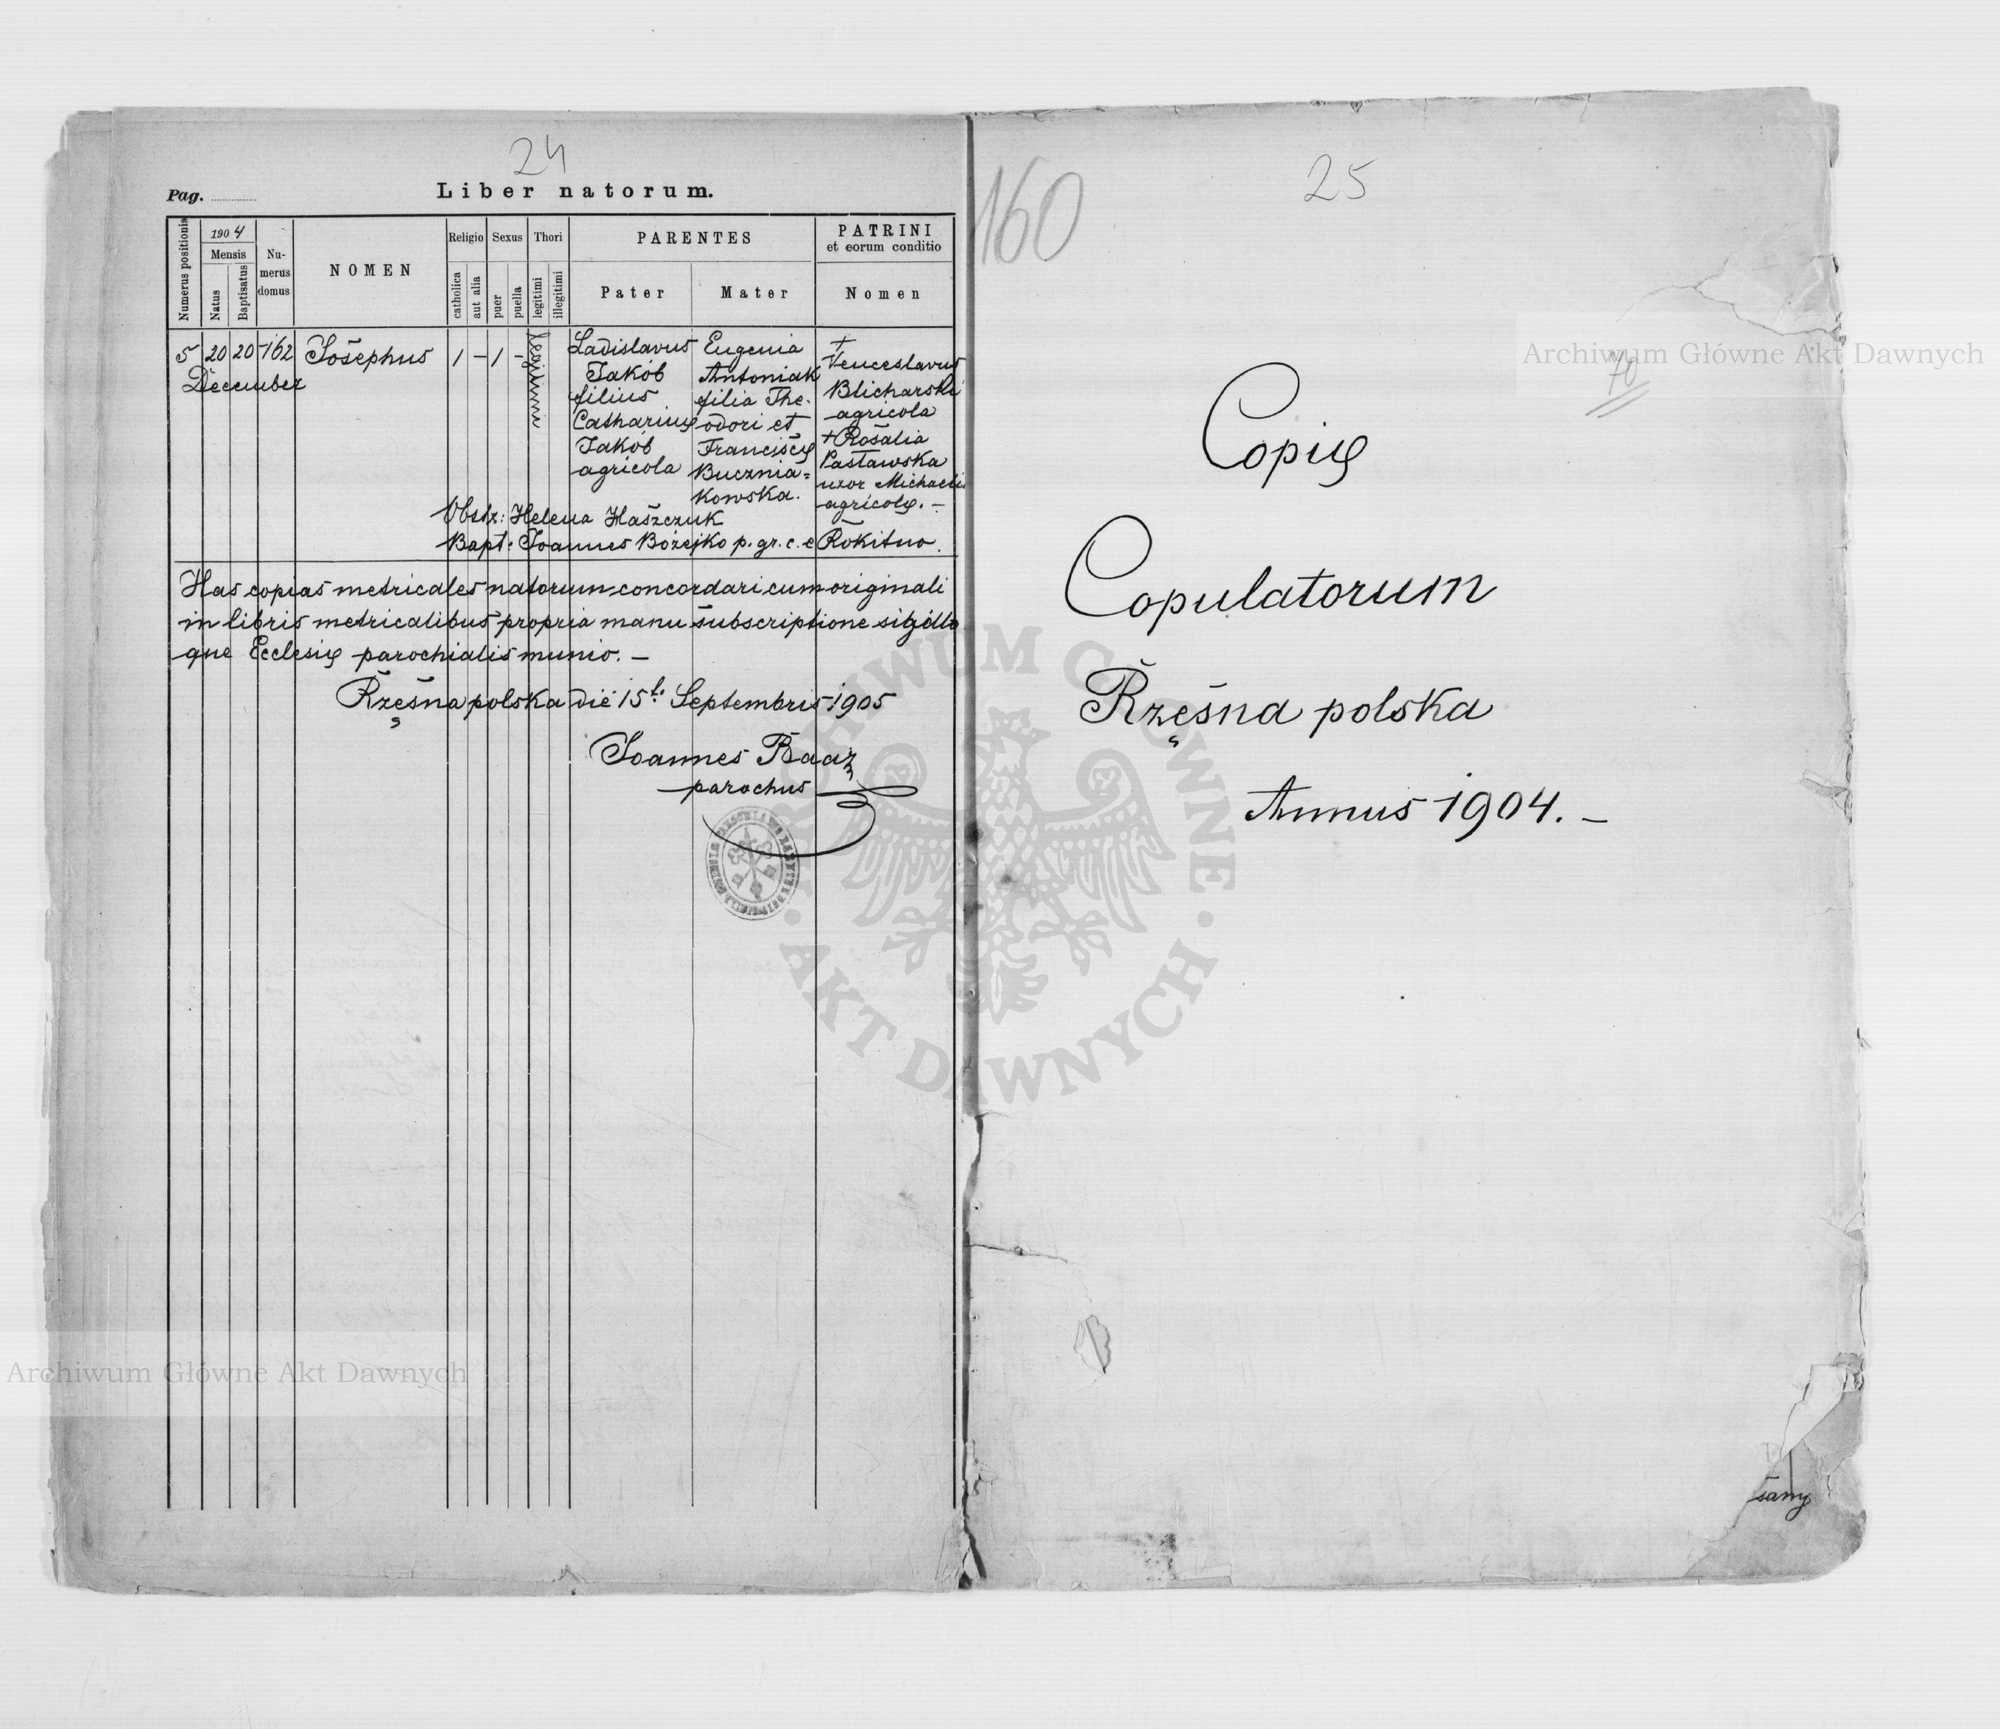 24
Pag.
Liber natorum.
Numerus positionis
1904
Mensis
Natus
Baptisatus
Nu-
merus
domus
NOMEN
Religio
catholica
aut alia
Sexus
puer
puella
Thori
legitimi
illegitimi
PARENTES
Pater
Mater
PATRINI
et eorum conditio
Nomen
5 20 20 162 Josephus 1 – 1 – legitimi
December
Ladislavus
Jakób
filius
Catharinę
Jakób
agricola
Eugenia
Antoniak
filia The-
odori et
Franciscę
Bucznia=
kowska.
+
Venceslavus
Blicharski
agricola
+ Rosalia
Pasławska
uxor Michaelis
agricolę. –
Obstr: Helena Haszczuk
Bapt: Joannes Bożejko p. gr. c. e Rokitno.
Has copias metricales natorum concordari cum originali
in libris metricalibus propria manu subscriptione sigillo
que Ecclesię parochialis munio. –
Rzęsna polska die 15t. Septembris 1905
Joannes Raaz
parochus
160
25
70
Copię
Copulatorum
Rzęsna polska
Annus 1904. –
sany
Archiwum Główne Akt Dawnych
ARCHIWUM GŁÓWNE
· AKT DAWNYCH ·
Archiwum Główne Akt Dawnych